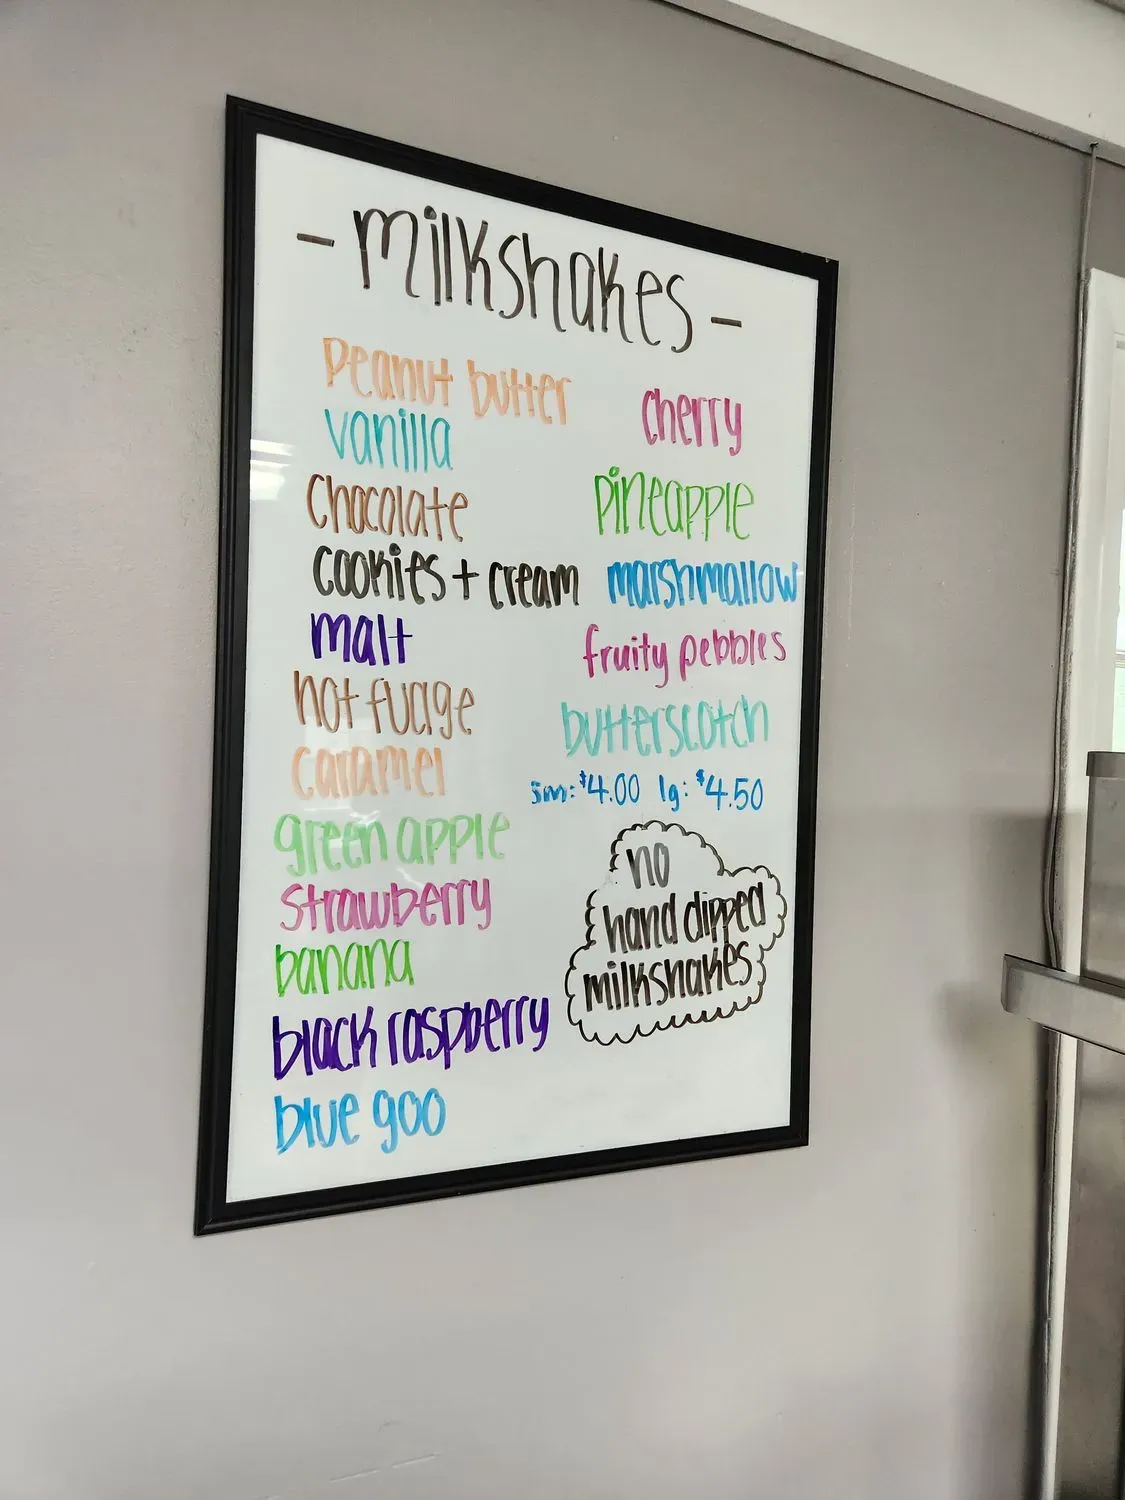 - milkshakes -
Peanut butter
vanilla
Chocolate
cookies + cream
malt
hot fudge
caramel
green apple
strawberry
banana
black raspberry
blue goo
cherry
pineapple
marshmallow
fruity pebbles
butterscotch
sm: $4.00 lg: $4.50
no
hand dipped
milkshakes